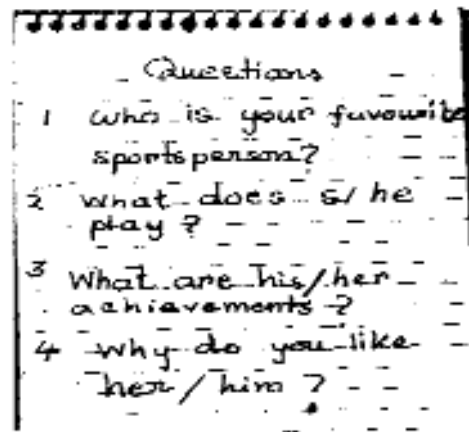 Questions
1 who is your favourite
sportsperson?
2 What does s/he
play?
3 What are his/her
achievements?
4 Why do you like
her/him?